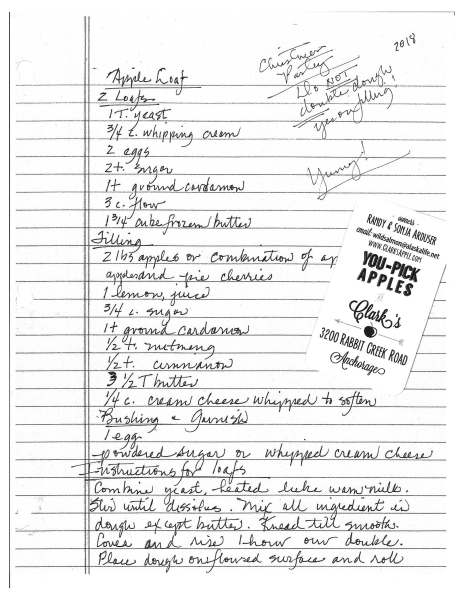 2018
Christmas
Party
Do NOT
double dough
yes on filling!
Yummy!
Apple Loaf
2 Loafs
1 T. yeast
3/4 c. whipping cream
2 eggs
2 t. sugar
1 t ground cardamon
3 c. flour
1 3/4 cube frozen butter
Filling
2 lbs apples or combination of ap
apples and pie cherries
1 lemon, juice
3/4 c. sugar
1 t ground cardamon
1/2 t. nutmeng
1/2 t. cinnnanon
3 1/2 T butter
1/4 c. cream cheese whipped to soften
Bushing & Garnish
1 egg
powdered sugar or whipped cream cheese
Instructions for loafs
Combine yeast, heated luke warm milk.
Stir until dissolves. Mix all ingredient in
dough except butter. Knead till smooth.
Cover and rise 1-hour our double.
Place dough on floured surface and roll
owners
RANDY & SONJA AROUSER
email: wildsalmon@alaskalife.net
WWW.CLARKSAPPLE.COM
YOU-PICK
APPLES
at
Clark's
3200 RABBIT CREEK ROAD
Anchorage